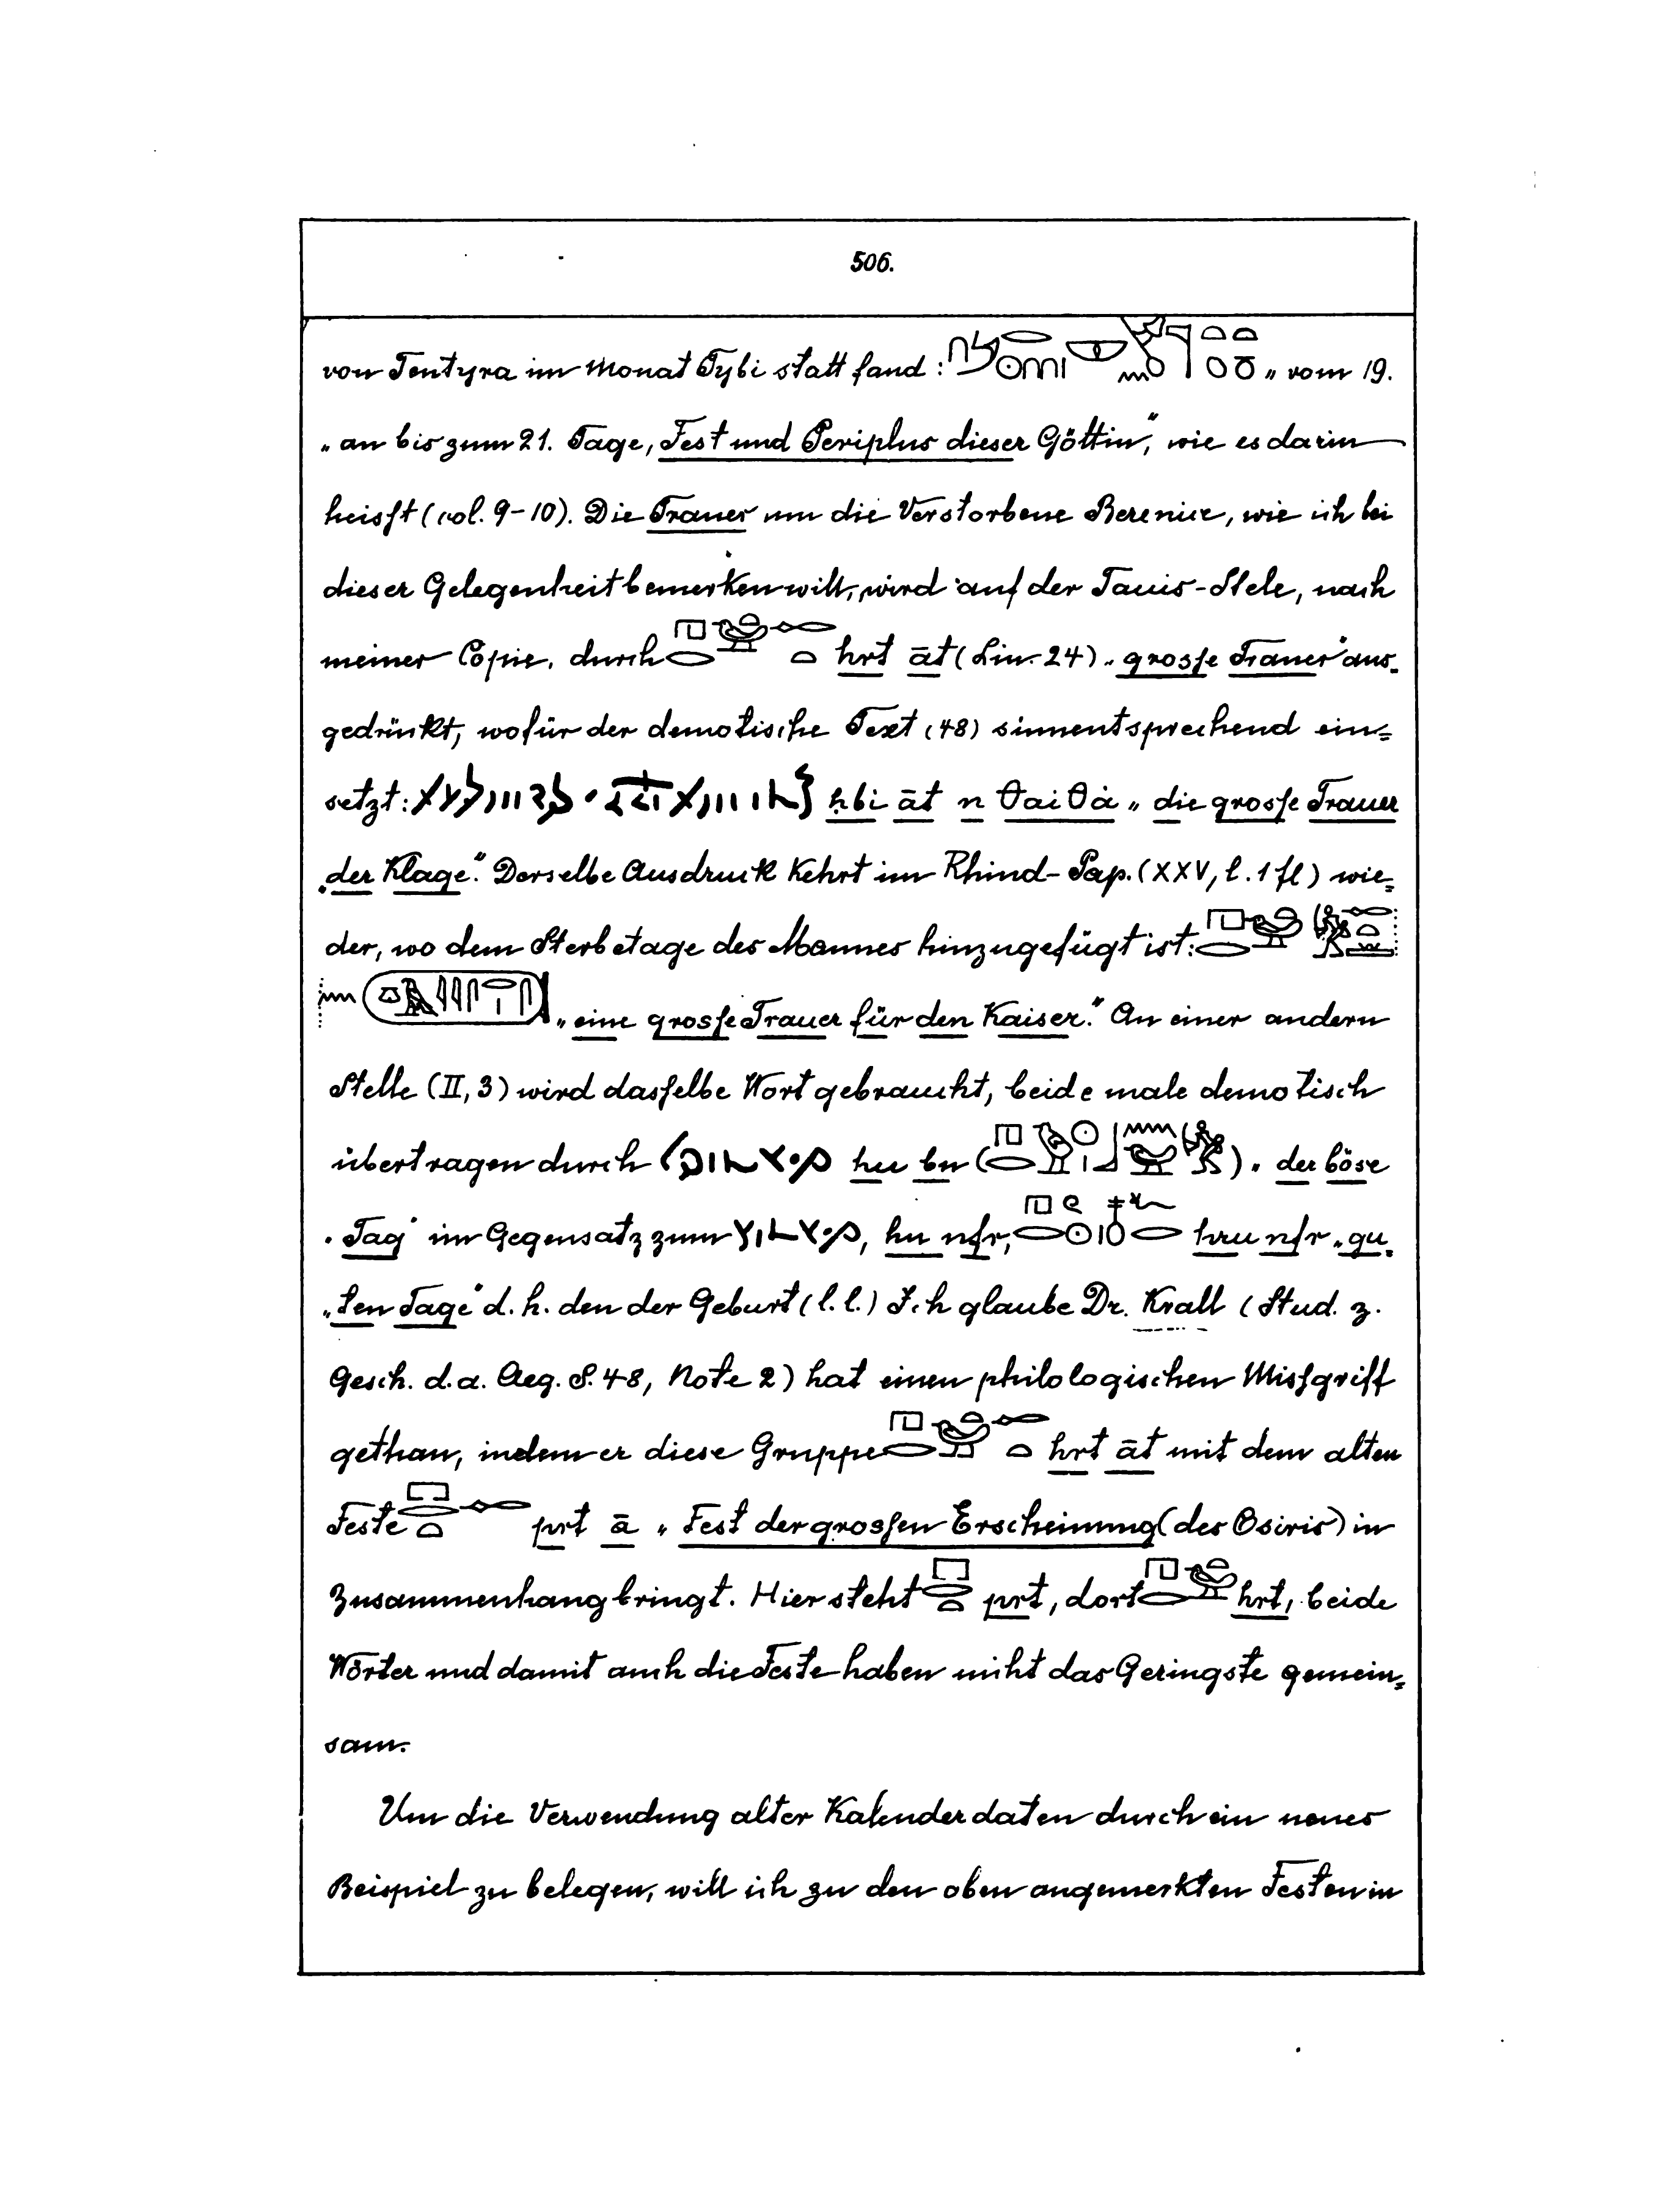 506.
von Tentyra im Monat Tybi statt fand: „ vom 19.
„an bis zum 21. Tage, Fest und Periplus dieser Göttin“, wie es darin
heisst (col. 9-10). Die Trauer um die Verstorbene Berenice, wie ich bei
dieser Gelegenheit bemerken will, wird auf der Tanis-Stele, nach
meiner Copie, durch hrt āt (Lin. 24) „grosse Trauer“ aus-
gedrückt, wofür der demotische Text (48) sinnentsprechend ein=
setzt: ḥbi āt n θaiθȧ „die grosse Trauer
„der Klage“. Derselbe Ausdruck kehrt im Rhind-Pap. (XXV, l. 1 fl) wie=
der, wo dem Sterbetage des Mannes hinzugefügt ist:
„eine grosse Trauer für den Kaiser.“ An einer andern
Stelle (II, 3) wird dasselbe Wort gebraucht, beide male demotisch
übertragen durch hu bn ( ) „der böse
„Tag“ im Gegensatz zum , hu nfr, hru nfr „gu-
„ten Tage“ d. h. den der Geburt (l. l.) Ich glaube Dr. Krall (Stud. z.
Gesch. d. a. Aeg. S. 48, Note 2) hat einen philologischen Missgriff
gethan, indem er diese Gruppe hrt āt mit dem alten
Feste prt ā „Fest der grossen Erscheinung (des Osiris) in
Zusammenhang bringt. Hier steht prt, dort hrt, beide
Wörter und damit auch die Feste haben nicht das Geringste gemein=
sam.
Um die Verwendung alter Kalenderdaten durch ein neues
Beispiel zu belegen, will ich zu den oben angemerkten Festen in